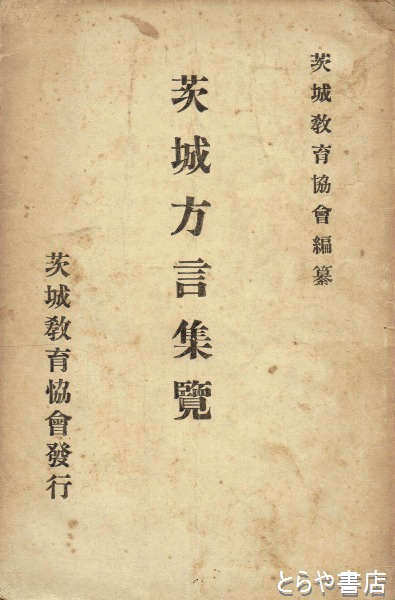 茨城教育協會編纂
茨城方言集覽
茨城教育恊會發行
とらや書店